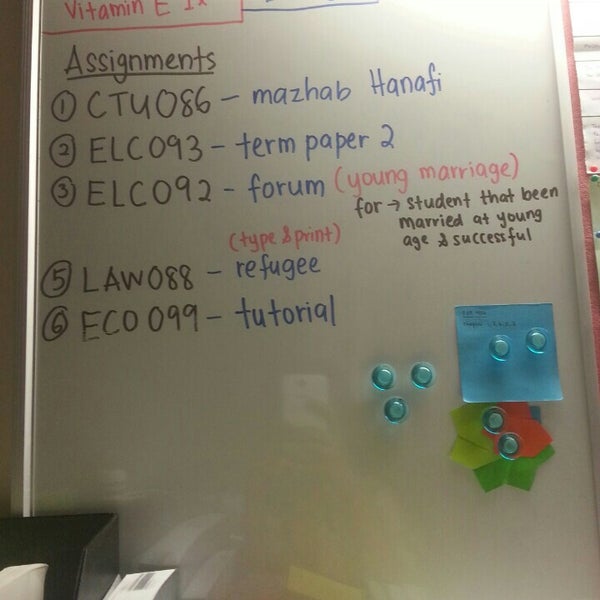 Vitamin E 1x
Assignments
① CTU086 - mazhab Hanafi
② ELC093 - term paper 2
③ ELC092 - forum (young marriage)
for → student that been
married at young
age & successful
(type & print)
⑤ LAW088 - refugee
⑥ ECO099 - tutorial